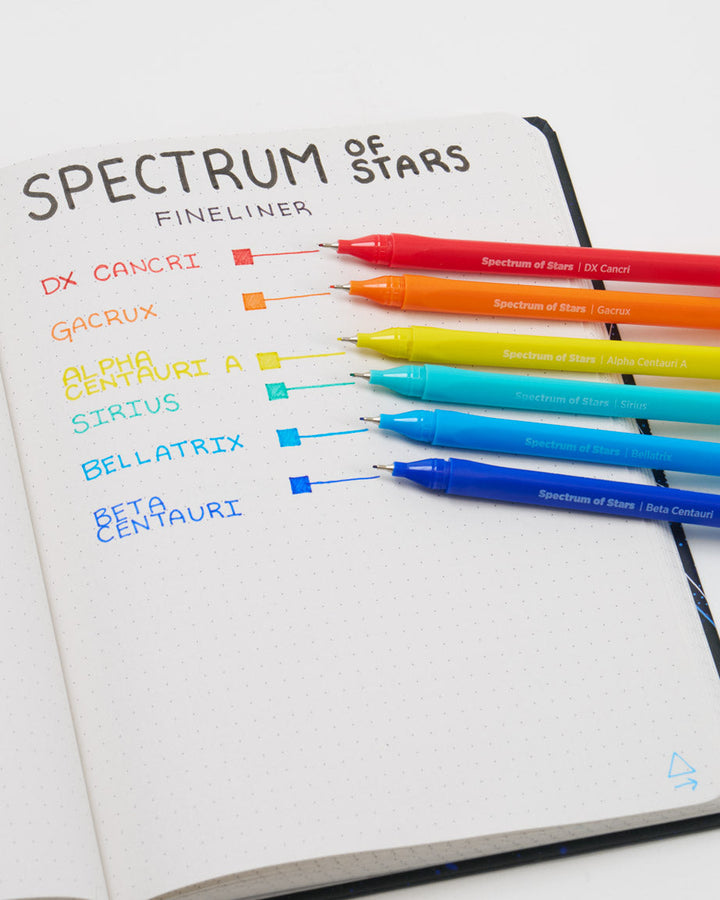 SPECTRUM OF STARS
FINELINER
DX CANCRI
GACRUX
ALPHA
CENTAURI A
SIRIUS
BELLATRIX
BETA
CENTAURI
Spectrum of Stars | DX Cancri
Spectrum of Stars | Gacrux
Spectrum of Stars | Alpha Centauri A
Spectrum of Stars | Sirius
Spectrum of Stars | Bellatrix
Spectrum of Stars | Beta Centauri